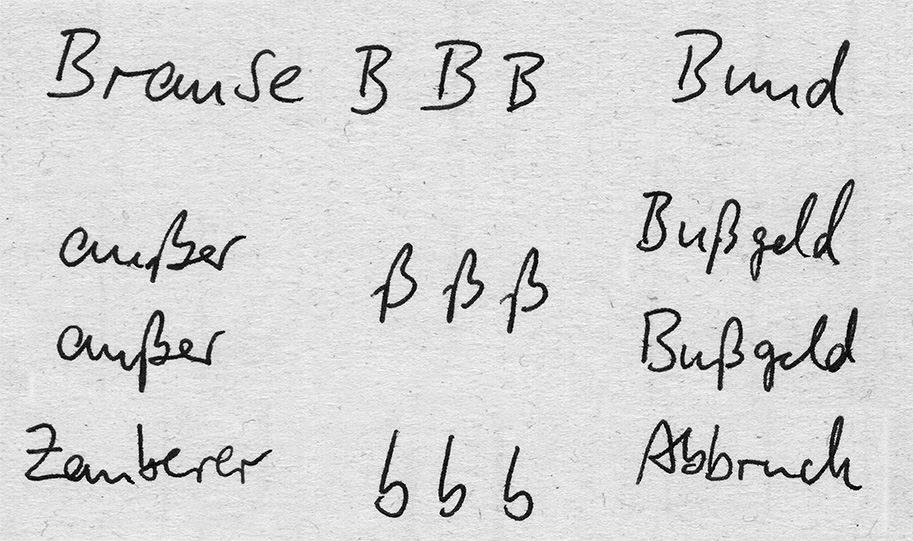 Brause B B B Bund
außer ß ß ß Bußgeld
außer Bußgeld
Zauberer b b b Abbruch